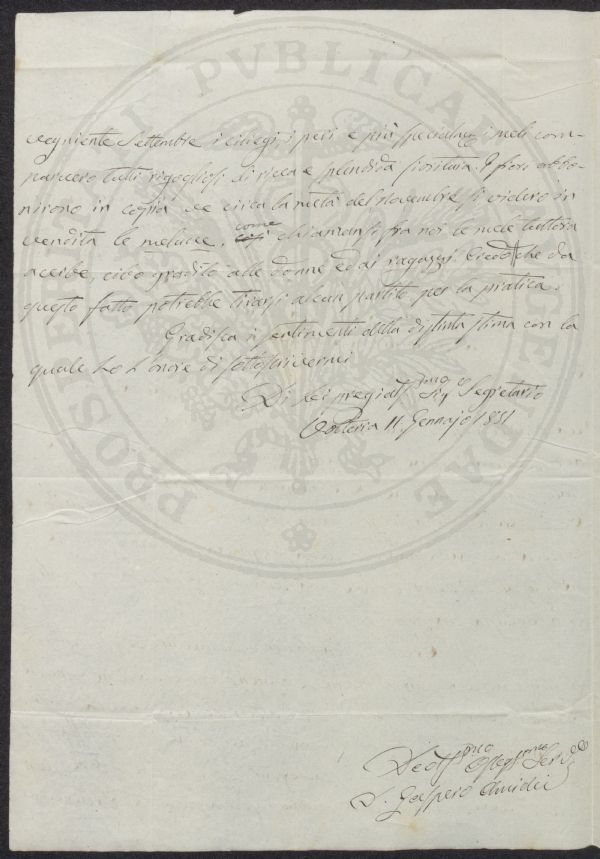 vegniente Settembre i ciliegi, i peri e più specialm.e i meli com-
parvero tutti rigogliosi di ricca e splendida fioritura. I fiori abbo-
nirono in copia e circa la metà del Novembre si videro in
vendita le meluce, come chiamansi fra noi le mele tuttora
acerbe, cibo gradito alle donne ed ai ragazzi. Credo che da
questo fatto potrebbe tirarsi alcun partito per la pratica.
Gradisca i sentimenti della distinta stima con la
quale ho l'onore di sottoscrivermi
Di Lei pregiatissmo Sig Segretario
Volterra 11 Gennajo 1831
Devotmo Obblmo Servo
D. Gaspero Amidei
PROSPERITATI PVBLICAE AVGENDAE